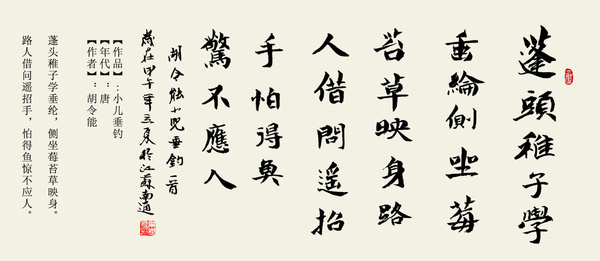 蓬頭稚子學
垂綸側坐莓
苔草映身路
人借問遥招
手怕得魚
驚不應人
胡令能小兒垂釣一首
歲在甲午年於江蘇南通
【作品】:小儿垂钓
【年代】:唐
【作者】:胡令能
蓬头稚子学垂纶，侧坐莓苔草映身。
路人借问遥招手，怕得鱼惊不应人。